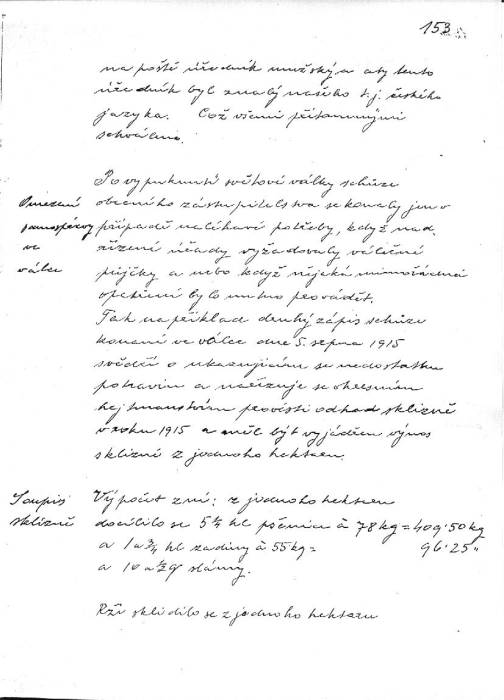 153
na poště úředník mužský a aby tento
úředník byl znalý našeho t.j. českého
jazyka. Což všemi přítomnými
schváleno.
Omezení
samosprávy
ve
válce
Po vypuknutí světové války schůze
obecního zastupitelstva se konaly jen v
případě naléhavé potřeby, když nad.
řízené úřady vyžadovaly válečné
půjčky a nebo když nějaká mimořádná
opatření bylo nutno provádět.
Tak na příklad druhý zápis schůze
konané ve válce dne 5. srpna 1915
svědčí o ukazujícím se nedostatku
potravin a nařizuje se okresním
hejtmanstvím provésti odhad sklizně
v roku 1915 a měl být vyjádřen výnos
sklizně z jednoho hektaru.
Soupis
sklizně
Výpočet zní: z jednoho hektaru
docílilo se 5¼ hl pšenice à 78 kg = 409·50 kg
a 1 a ¾ hl zadiny à 55 kg = 96·25 "
a 10 a ½ q slámy.
Rži sklidilo se z jednoho hektaru